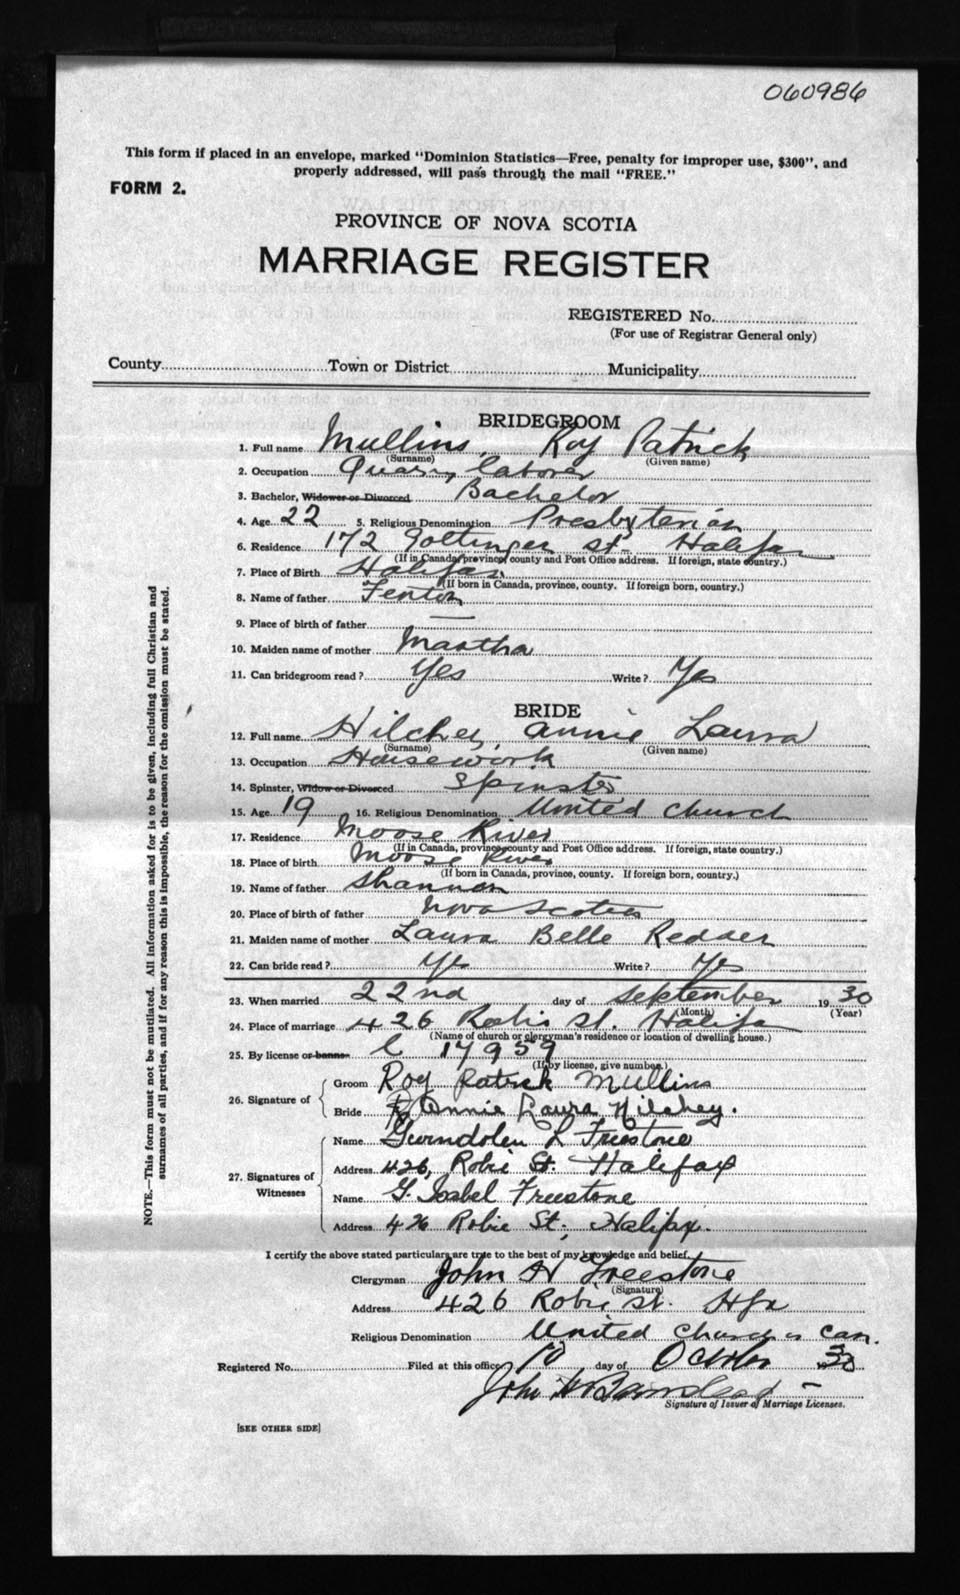 060986
This form if placed in an envelope, marked "Dominion Statistics—Free, penalty for improper use, $300", and
properly addressed, will pass through the mail "FREE."
FORM 2.
PROVINCE OF NOVA SCOTIA
MARRIAGE REGISTER
REGISTERED No.
(For use of Registrar General only)
County Town or District Municipality
BRIDEGROOM
1. Full name Mullins, Roy Patrick
(Surname) (Given name)
2. Occupation Quarry laborer
3. Bachelor, Widower or Divorced Bachelor
4. Age 22 5. Religious Denomination Presbyterian
6. Residence 172 Gottinger St. Halifax
(If in Canada, province, county and Post Office address. If foreign, state country.)
7. Place of Birth Halifax
(If born in Canada, province, county. If foreign born, country.)
8. Name of father Fenton
9. Place of birth of father —
10. Maiden name of mother Martha
11. Can bridegroom read? Yes Write? Yes
BRIDE
12. Full name Hilchey, Annie Laura
(Surname) (Given name)
13. Occupation Housework
14. Spinster, Widow or Divorced Spinster
15. Age 19 16. Religious Denomination United Church
17. Residence Moose River
(If in Canada, province, county and Post Office address. If foreign, state country.)
18. Place of birth Moose River
(If born in Canada, province, county. If foreign born, country.)
19. Name of father Shannon
20. Place of birth of father Nova Scotia
21. Maiden name of mother Laura Belle Redder
22. Can bride read? Yes Write? Yes
23. When married 22nd day of September 1930
(Month) (Year)
24. Place of marriage 426 Robie St. Halifax
(Name of church or clergyman's residence or location of dwelling house.)
25. By license or banns L 17959
(If by license, give number.)
26. Signature of
Groom Roy Patrick Mullins
Bride Annie Laura Hilchey.
27. Signatures of Witnesses
Name Gwindolen L Freestone
Address 426, Robie St. Halifax
Name G. Isabel Freestone
Address 426 Robie St, Halifax.
I certify the above stated particulars are true to the best of my knowledge and belief.
Clergyman John H Freestone
(Signature)
Address 426 Robie St. Hfx
Religious Denomination United Church of Can.
Registered No. Filed at this office 10 day of October 1930
John
Signature of Issuer of Marriage Licenses.
[SEE OTHER SIDE]
NOTE.—This form must not be mutilated. All information asked for is to be given, including full Christian and
surnames of all parties, and if for any reason this is impossible, the reason for the omission must be stated.